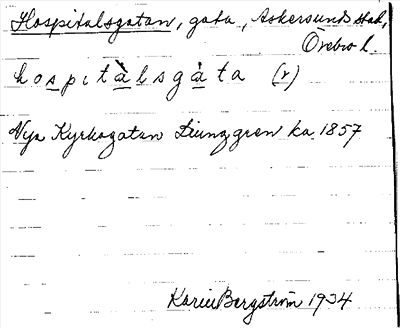 Hospitalsgatan, gata, Askersunds stad,
Örebro l.
hospitàlsgàta (r)
Nya Kyrkogatan Ljunggren ka. 1857
Karin Bergström 1934